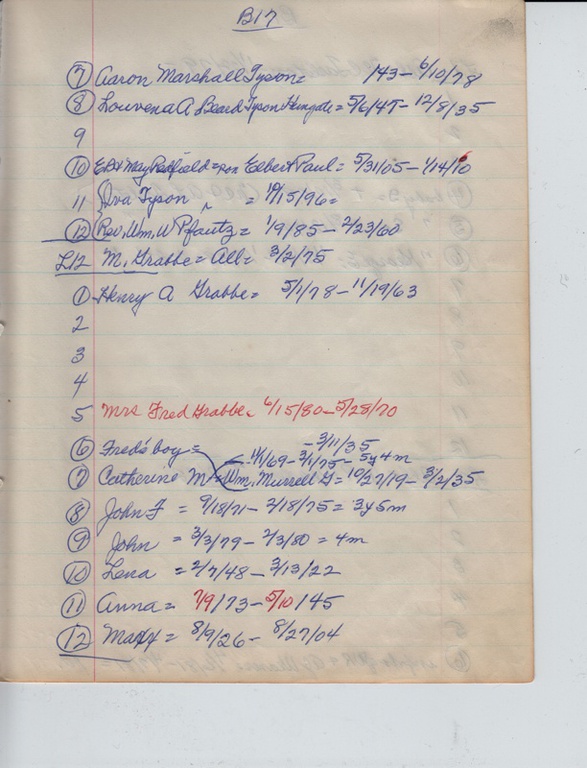 B17
7 Aaron Marshall Tyson = /43 - 6/10/78
8 Louvena A Beard Tyson Hungate = 5/6/47 - 12/8/35
9
10 May Redfield = son Elbert Paul = 5/31/05 - 1/14/10
11 Iva Tyson = 10/15/96 =
12 Rev. Wm. W Pfautz = 1/9/85 - 2/23/60
L12 M. Grabbe = All = 3/2/75
1 Henry A Grabbe = 5/1/78 - 11/19/63
2
3
4
5 Mrs Fred Grabbe = 6/15/80 - 5/28/70
6 Fred's boy = - 3/11/35
11/1/69 - 3/1/75 - 5y 4m
7 Catherine M = Wm. Murrell G = 10/27/19 - 3/2/35
8 John F = 9/18/71 - 2/18/75 = 3y5m
9 John = 3/3/79 - 7/3/80 = 4m
10 Lena = 2/7/48 - 3/13/22
11 Anna = 7/9/73 - 5/10/45
12 = 8/9/26 - 8/27/04